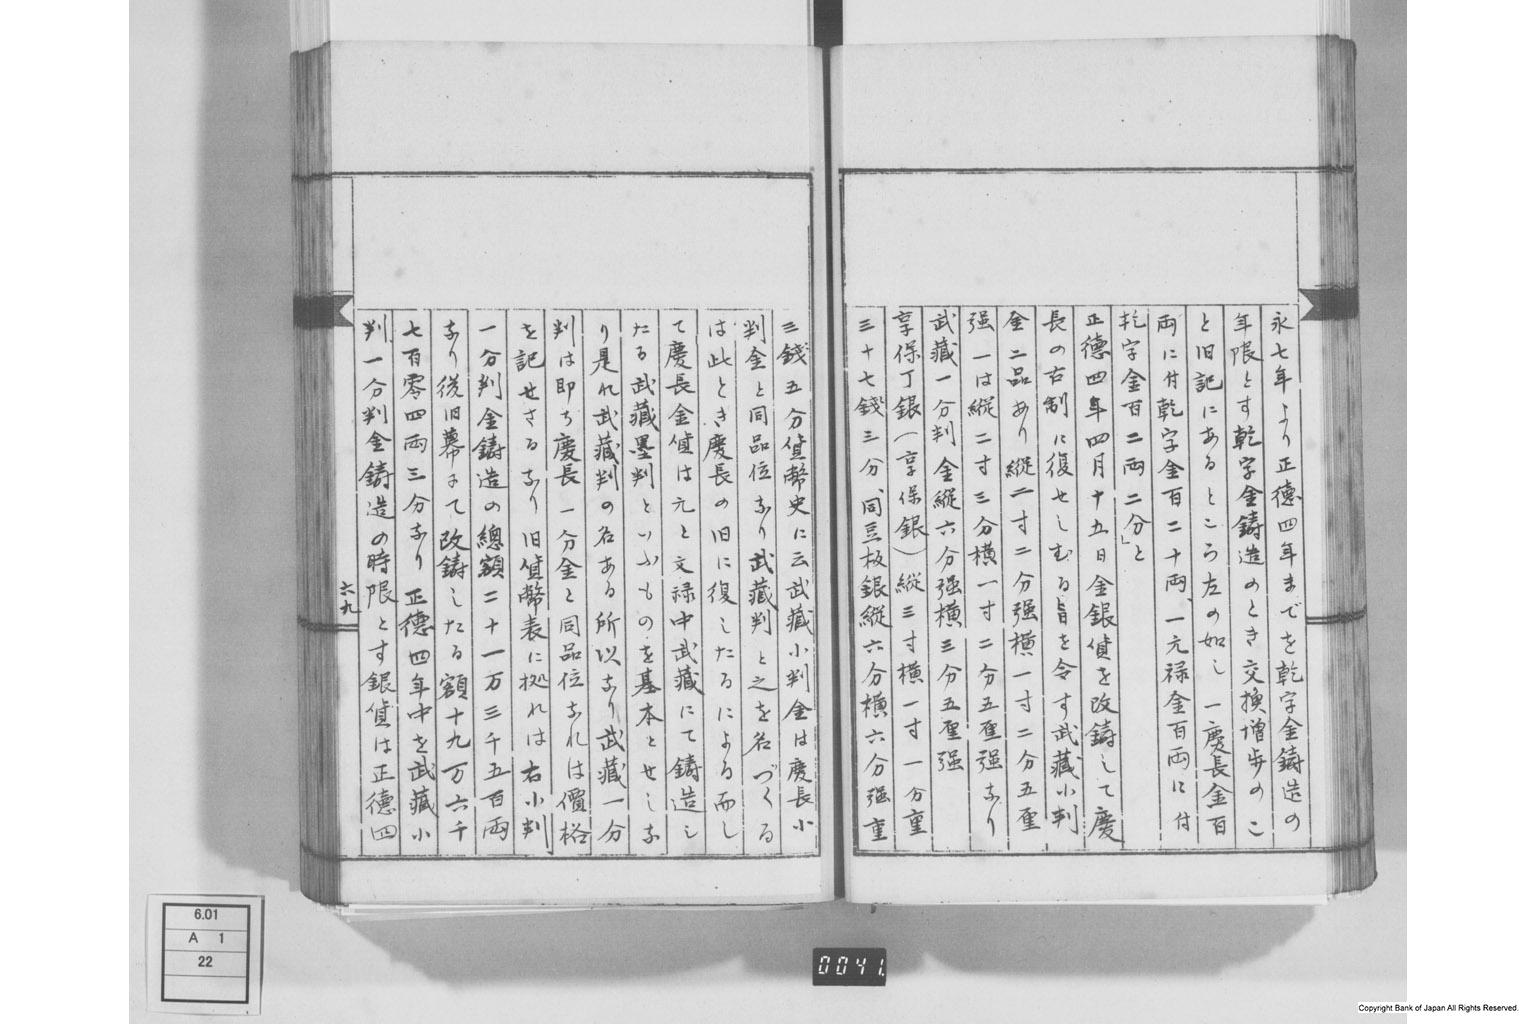 永七年より正德四年までを乾字金鋳造の
年限とす乾字金鋳造のとき交換増歩のこ
と旧記にあるところ左の如し一慶長金百
両に付乾字金百二十両、一元禄金百両に付
乾字金百二両二分」と
正德四年四月十五日金銀貨を改鋳して慶
長の古制に復せしむる旨を令す武藏小判
金二品あり縱二寸二分强横一寸二分五厘
强一は縱二寸三分横一寸二分五厘强なり
武藏一分判金縱六分强横三分五厘强
享保丁銀(享保銀)縱三寸横一寸一分重
三十七錢三分、同豆板銀縱六分横六分强重
三錢五分貨幣史に云武藏小判金は慶長小
判金と同品位なり武藏判と之を名づくる
は此とき慶長の旧に復したるによる而し
て慶長金貨は元と文禄中武藏にて鋳造し
たる武藏墨判といふものを基本とせしな
り是れ武藏判の名ある所以なり武藏一分
判は即ち慶長一分金と同品位なれは價格
を記せさるなり旧貨幣表に拠れは右小判
一分判金鋳造の總額二十一万三千五百両
なり従旧幕にて改鋳したる額十九万六千
七百零四両三分なり正德四年中を武藏小
判一分判金鋳造の時限とす銀貨は正德四
六九
6.01
A 1
22
0041
Copyright Bank of Japan All Rights Reserved.